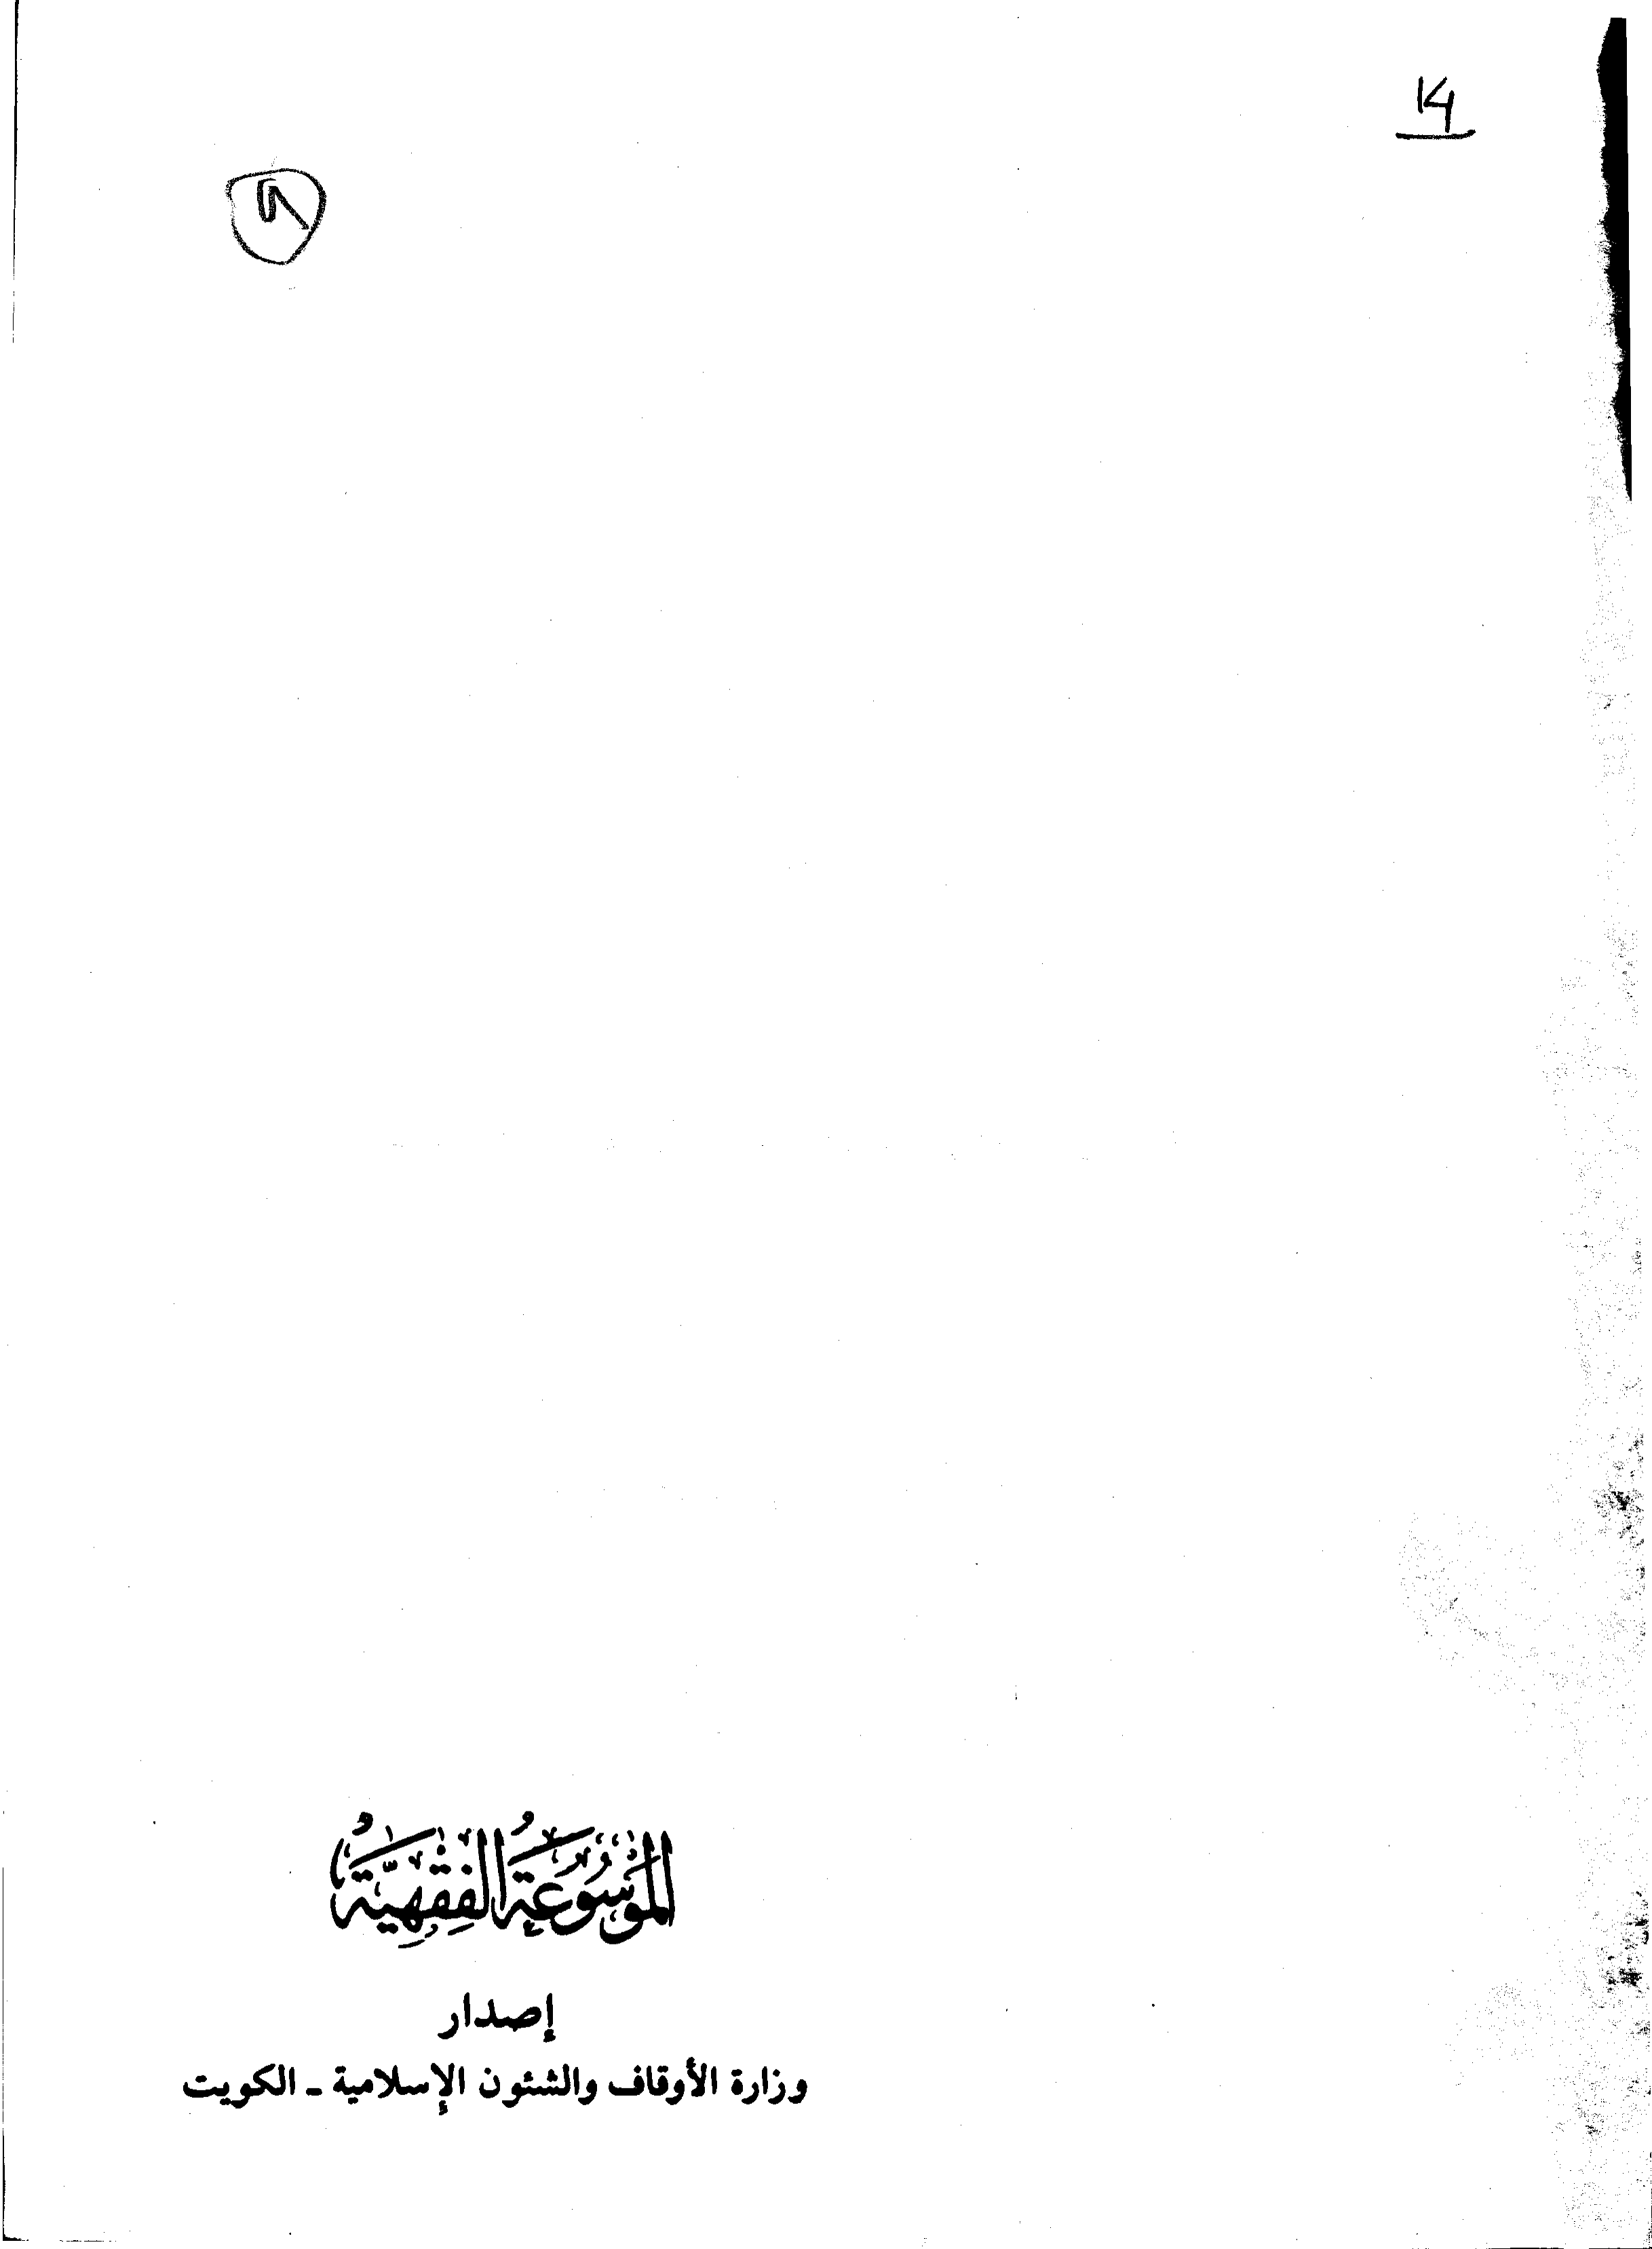 14
الموسوعة الفقهية
إصدار
وزارة الأوقاف والشئون الإسلامية ـ الكويت